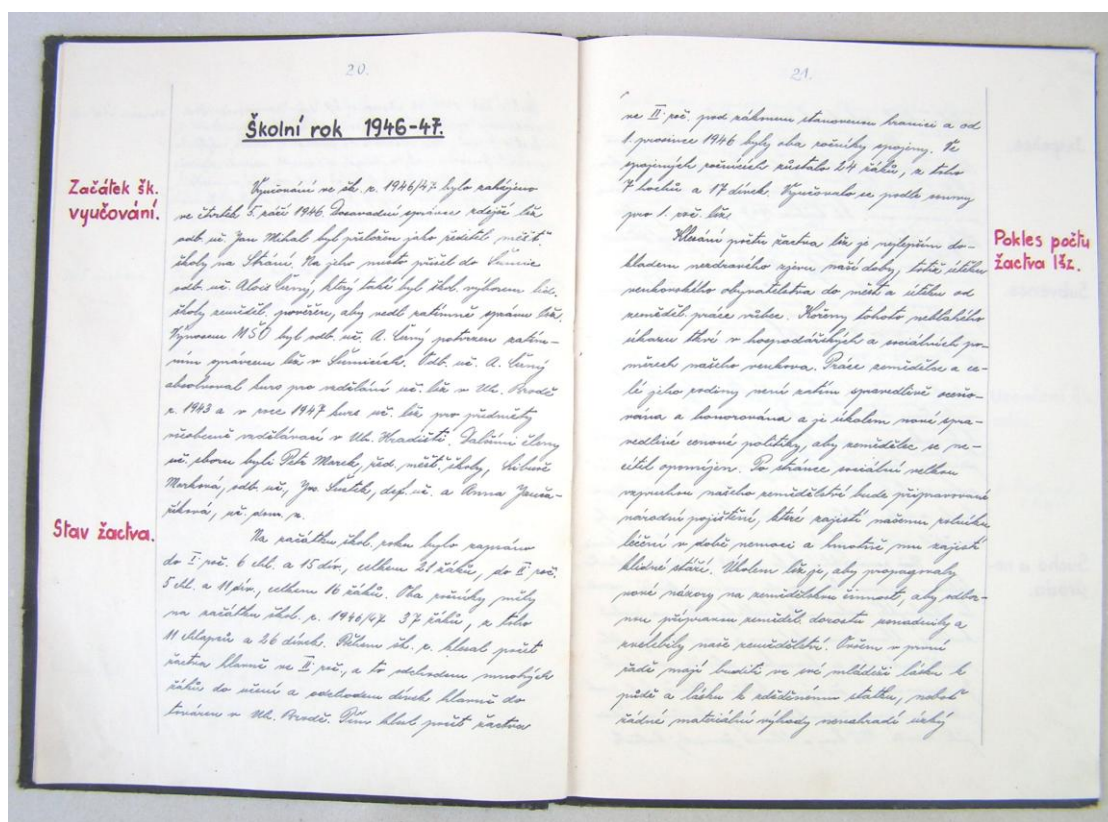 20.
Školní rok 1946-47.
Začátek šk.
vyučování.
Vyučování ve šk. r. 1946/47 bylo zahájeno
ve čtvrtek 5. září 1946. Dosavadní správce zdejší lšz
odb. uč. Jan Mihal byl přeložen jako ředitel měšť.
školy na Strání. Na jeho místo přišel do Šumic
odb. uč. Alois Černý, který také byl škol. výborem lid.
školy zeměděl. pověřen, aby vedl zatímně správu lšz.
Výnosem MŠO byl odb. uč. A. Černý potvrzen zatím-
ním správcem lšz v Šumicích. Odb. uč. A. Černý
absolvoval kurs pro vzdělání uč. lšz v Uh. Brodě
r. 1943 a v roce 1947 kurs uč. lšz pro předměty
všeobecně vzdělávací v Uh. Hradišti. Dalšími členy
uč. sboru byli Petr Marek, řed. měšť. školy, Libuše
Marková, odb. uč., Jos. Šustek, def. uč. a Anna Janča-
říková, uč. dom. n.
Stav žactva.
Na začátku škol. roku bylo zapsáno
do I. roč. 6 chl. a 15 dív., celkem 21 žáků, do II. roč.
5 chl. a 11 dív., celkem 16 žáků. Oba ročníky měly
na začátku škol. r. 1946/47 37 žáků, z toho
11 chlapců a 26 dívek. Během šk. r. klesal počet
žactva hlavně ve II. roč., a to odchodem mnohých
žáků do učení a odchodem dívek hlavně do
továren v Uh. Brodě. Tím klesl počet žactva
21.
ve II. roč. pod zákonem stanovenou hranici a od
1. prosince 1946 byly oba ročníky spojeny. Ve
spojených ročnících zůstalo 24 žáků, z toho
7 hochů a 17 dívek. Vyučovalo se podle osnovy
pro 1. roč. lšz.
Pokles počtu
žactva lšz.
Klesání počtu žactva lšz je nejlepším do-
kladem nezdravého zjevu naší doby, totiž útěku
venkovského obyvatelstva do měst a útěku od
zeměděl. práce vůbec. Kořeny tohoto neblahého
úkazu tkví v hospodářských a sociálních po-
měrech našeho venkova. Práce zemědělce a ce-
lé jeho rodiny není zatím spravedlivě oceňo-
vána a honorována a je úkolem nové spra-
vedlivé cenové politiky, aby zemědělec se ne-
cítil opomíjen. Po stránce sociální velkou
vzpruhou našeho zemědělství bude připravované
národní pojištění, které zajistí našemu rolníku
léčení v době nemoci a hmotně mu zajistí
klidné stáří. Úkolem lšz je, aby propagovaly
nové názory na zemědělskou činnost, aby odbor-
nou přípravou zeměděl. dorostu usnadnily a
zvelebily naše zemědělství. Ovšem v první
řadě mají buditi ve své mládeži lásku k
půdě a lásku k zděděnému statku, neboť
žádné materiální výhody nenahradí úzký